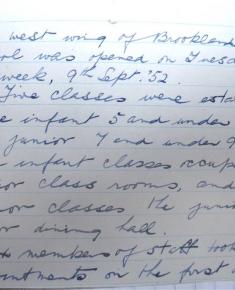 west wing of Brookland
was opened on Tuesd
week, 9th Sept. '52.
Five classes were esta
infant 5 and under
junior 7 and under 9
infant classes occup
class rooms, and
classes the juni
dining hall.
members of staff took
on the first